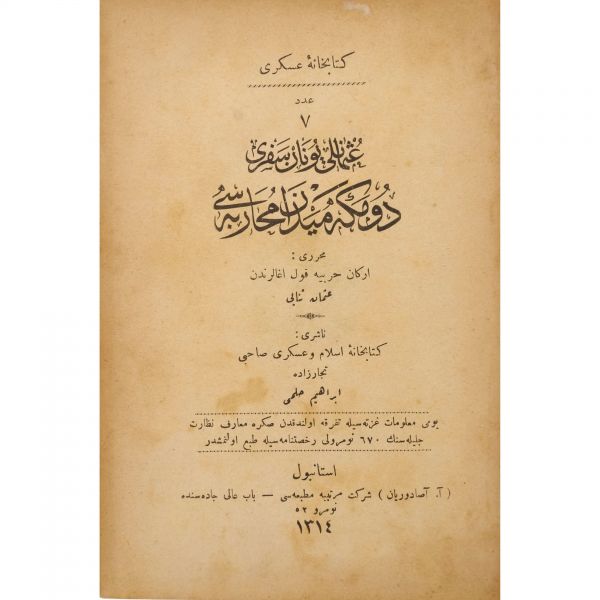 كتابخانهٔ عسكرى
عدد
٧
عثمانلى يونان سفرى
دومكه ميدان محاربه سى
محررى :
اركان حربيه قول اغالرندن
عثمان ثنائى
ناشرى :
كتابخانهٔ اسلام و عسكرى صاحبى
تجارزاده
ابراهيم حلمى
يومى معلومات غزته سيله تفرقه اولندقدن صكره معارف نظارت
جليله سنك ٦٧٠ نومرولى رخصتنامه سيله طبع اولنمشدر
استانبول
( آ. آصادوريان ) شركت مرتبيه مطبعه سى — باب عالى جاده سنده
نومرو ٥٢
١٣١٤